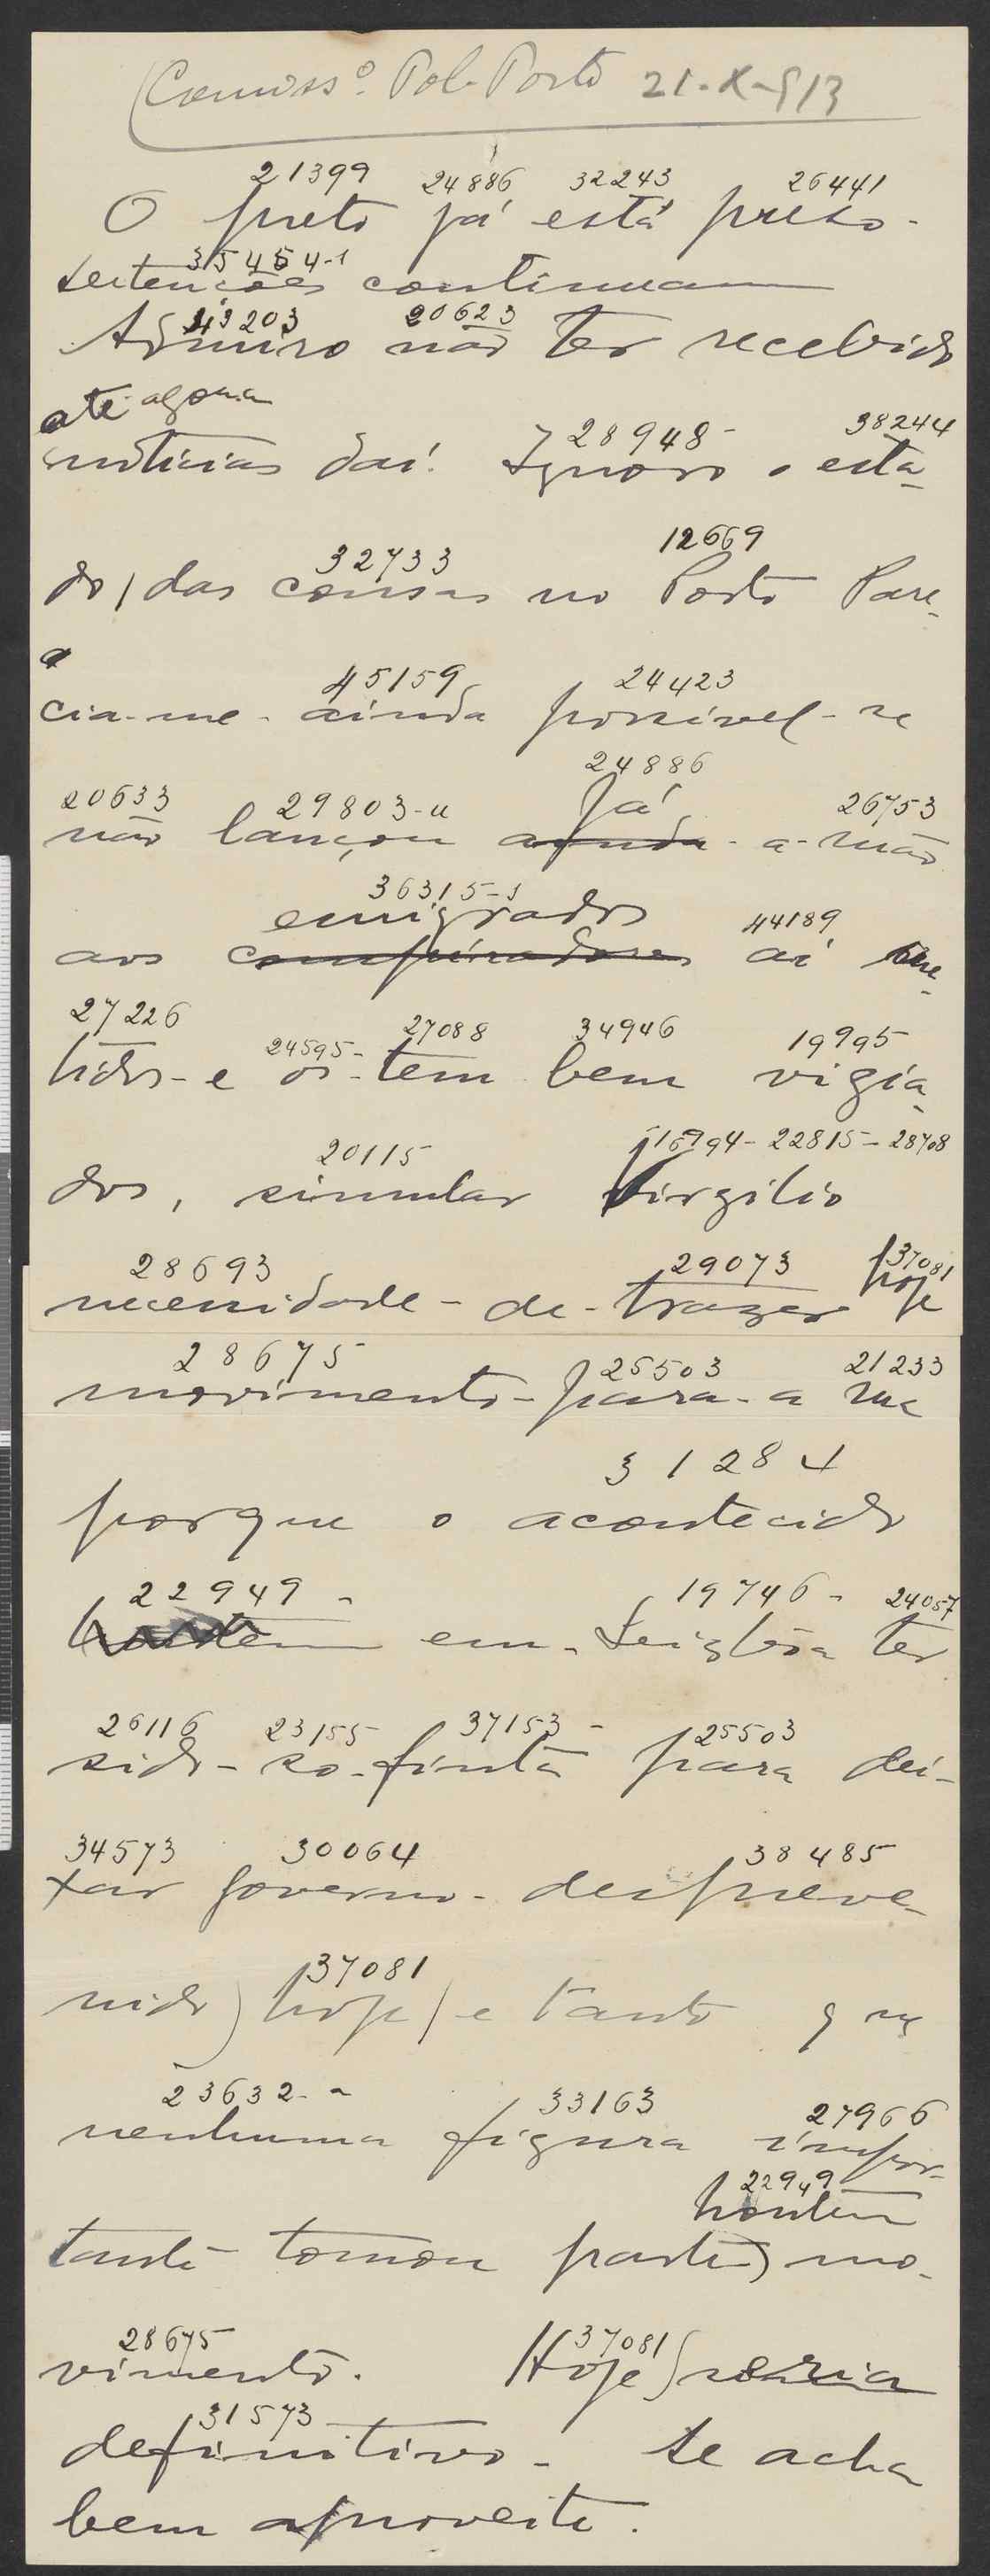 Comissº. Pol. Porto 21-X-913
21399 24886 32243 26441
O preto já está preso.
35454-1
continuam
43203 20623
Admiro não ter recebido
até agora
noticias daí. Ignoro o esta-
28948- 38244
32733 12669
do das cousas no Porto Pare-
45159 24423
cia-me-ainda possivel-se
24886
20633 29803-u já 26753
não lançou ainda-a-mão
36315-s
emigrados 44189
aos conspiradores aí
27226 24595- 27088 34946 19995
tidos-e os-tem bem vigia-
20115 16994-22815-28708
dos, simular Virgilio
28693 29073 37081
necessidade-de-trazer hoje
28675 25503 21233
movimento-para-a rua
31284
porque o acontecido
22949- 19746- 24057
hontem em-Lisbôa ter
26116 23155- 37153- 25503
sido-so-finta para dei-
34573 30064 38485
xar governo-despreve-
37081
nido) hoje) e tanto q ne
23632-a 33163 27966
nenhuma figura impor-
22949
hontem
tante tomou parte) mo-
28675 37081
vimento. Hoje) seria
31573
definitivo- Se acha
bem aproveite.